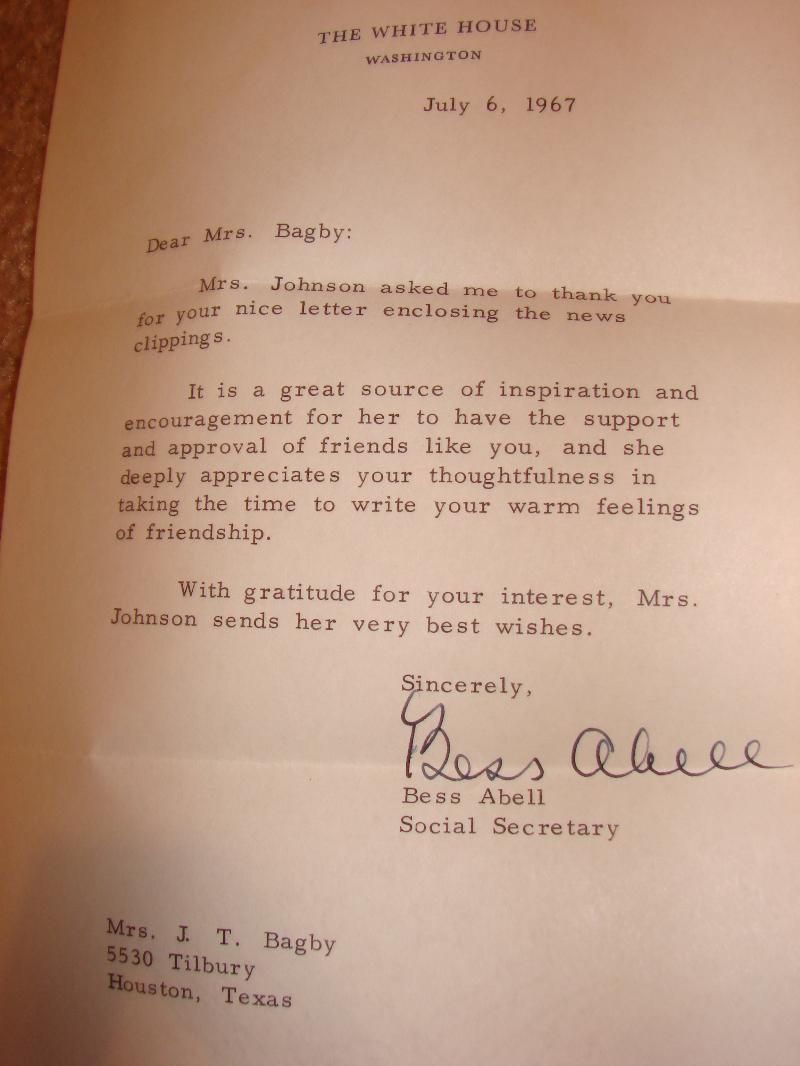 THE WHITE HOUSE
WASHINGTON
July 6, 1967
Dear Mrs. Bagby:
Mrs. Johnson asked me to thank you
for your nice letter enclosing the news
clippings.
It is a great source of inspiration and
encouragement for her to have the support
and approval of friends like you, and she
deeply appreciates your thoughtfulness in
taking the time to write your warm feelings
of friendship.
With gratitude for your interest, Mrs.
Johnson sends her very best wishes.
Sincerely,
Bess Abell
Bess Abell
Social Secretary
Mrs. J. T. Bagby
5530 Tilbury
Houston, Texas